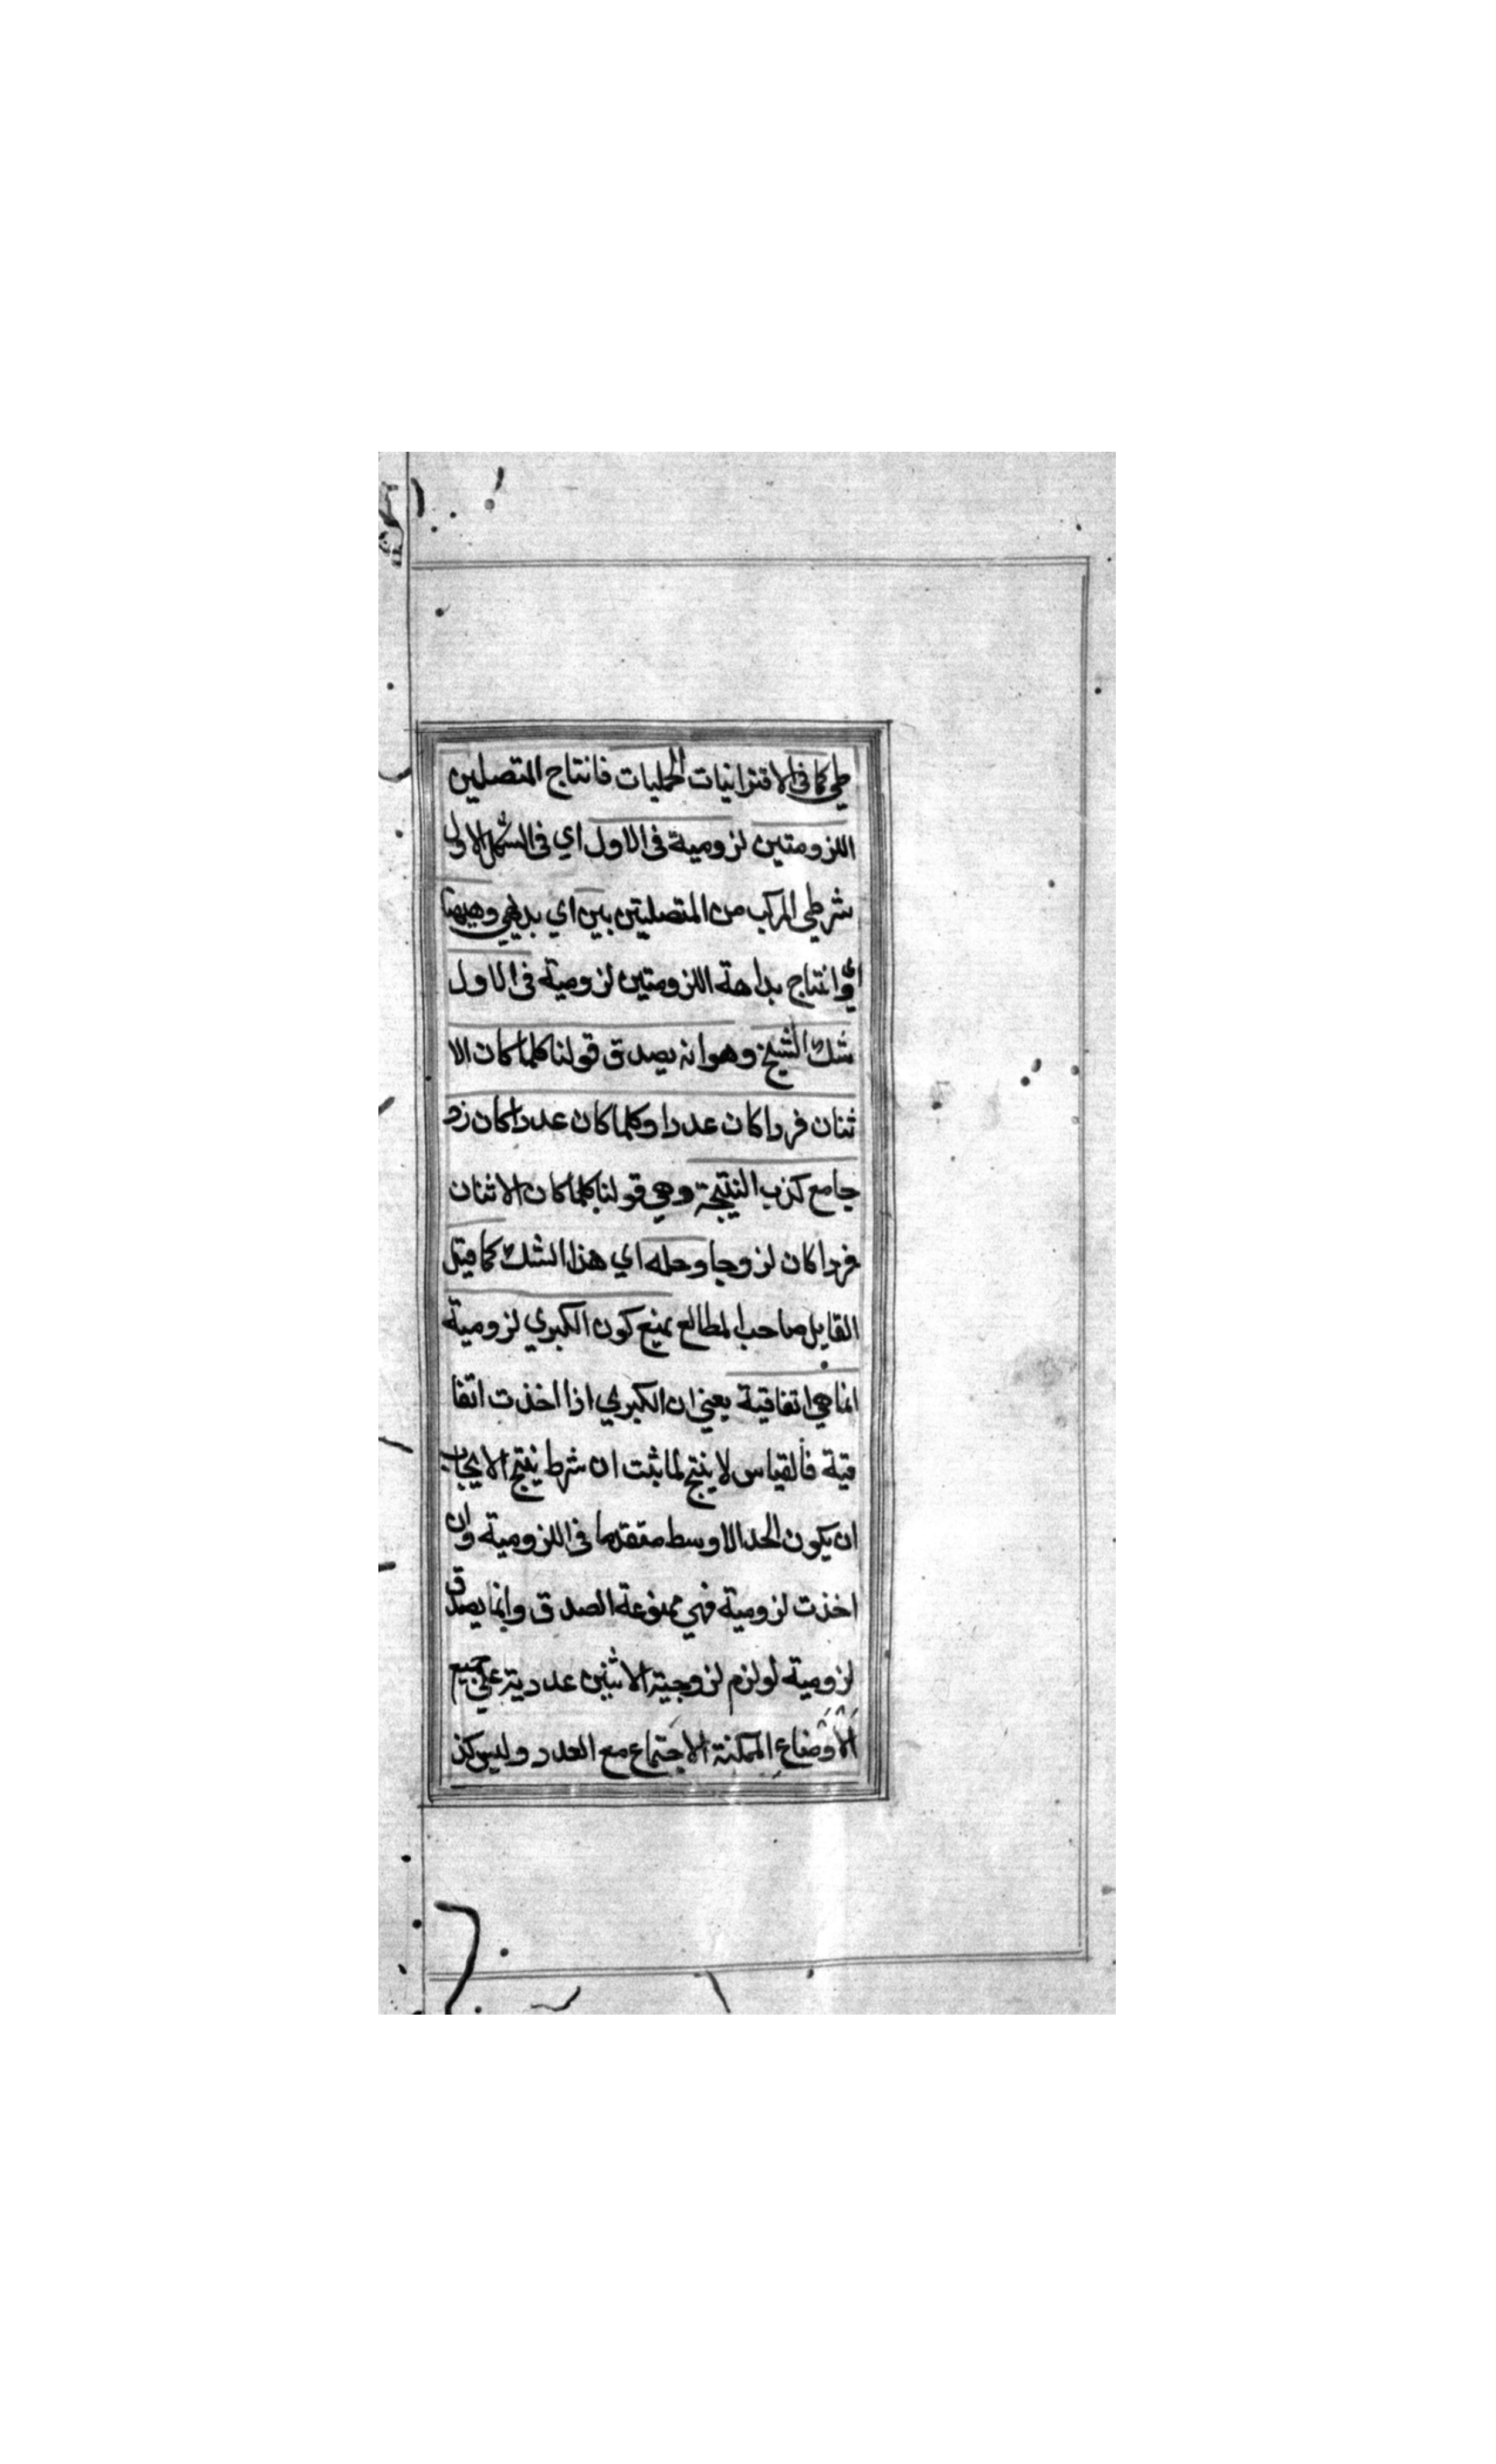 طي كما في الاقترانيات الحمليات فانتاج المتصلين
اللزومتين لزومية في الاول اي في الشكل الاول
شرطي المركب من المتصليتين بين اي بديهي وههنا
اي وانتاج بداهة اللزومتين لزومية في الاول
شك الشيخ وهو انه يصدق قولنا كلما كان الا
ثنان فردا كان عددا وكلما كان عددا كان زو
جا مع كذب النتيجة وهي قولنا كلما كان الاثنان
فردا كان لزوجا وحله اي هذا الشك كما قيل
القايل صاحب المطالع بمنع كون الكبري لزومية
انما هي اتفاقية يعني ان الكبري اذا اخذت اتفا
قية فالقياس لا ينتج لما ثبت ان شرط ينتج الايجاب
ان يكون الحد الاوسط متقدما في اللزومية وان
اخذت لزومية فهي ممنوعة الصدق وانما يصدق
لزومية لو لزم لزوجية الاثنين عددية علي جميع
الاوضاع الممكنة الاجتماع مع العدد وليس كذ